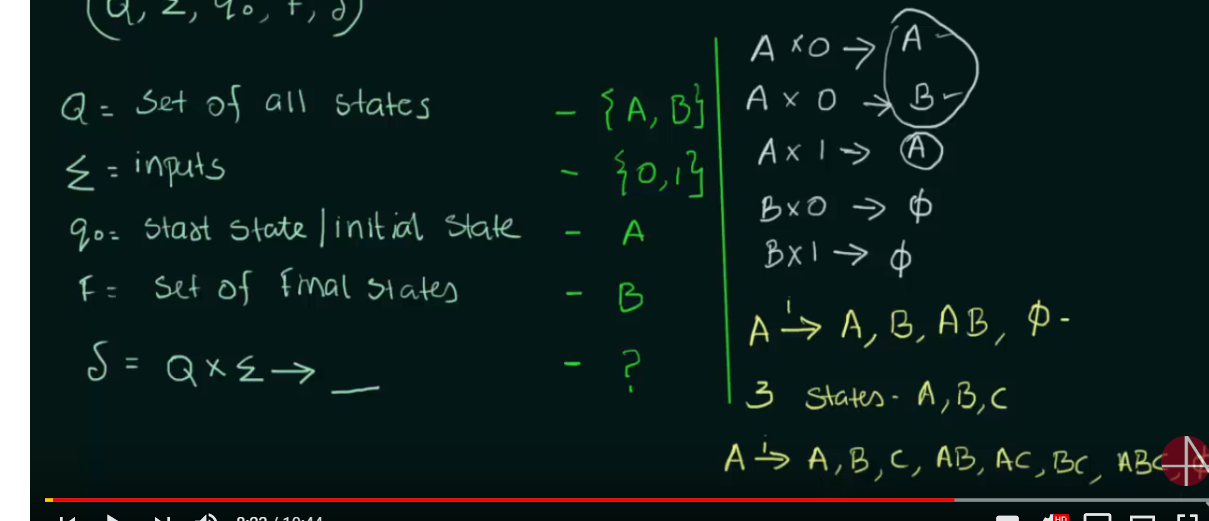 (Q, Σ, q0, F, δ)
Q = Set of all states - {A, B}
Σ = inputs - {0,1}
q0= Start state/initial State - A
F = Set of Final States - B
δ = Q×Σ→ __ - ?
A ×0 → A
A × 0 → B
A × 1 → A
B×0 → ϕ
B×1 → ϕ
A i→ A, B, AB, ϕ -
3 States - A, B, C
A i→ A, B, C, AB, AC, BC, ABC,
HD